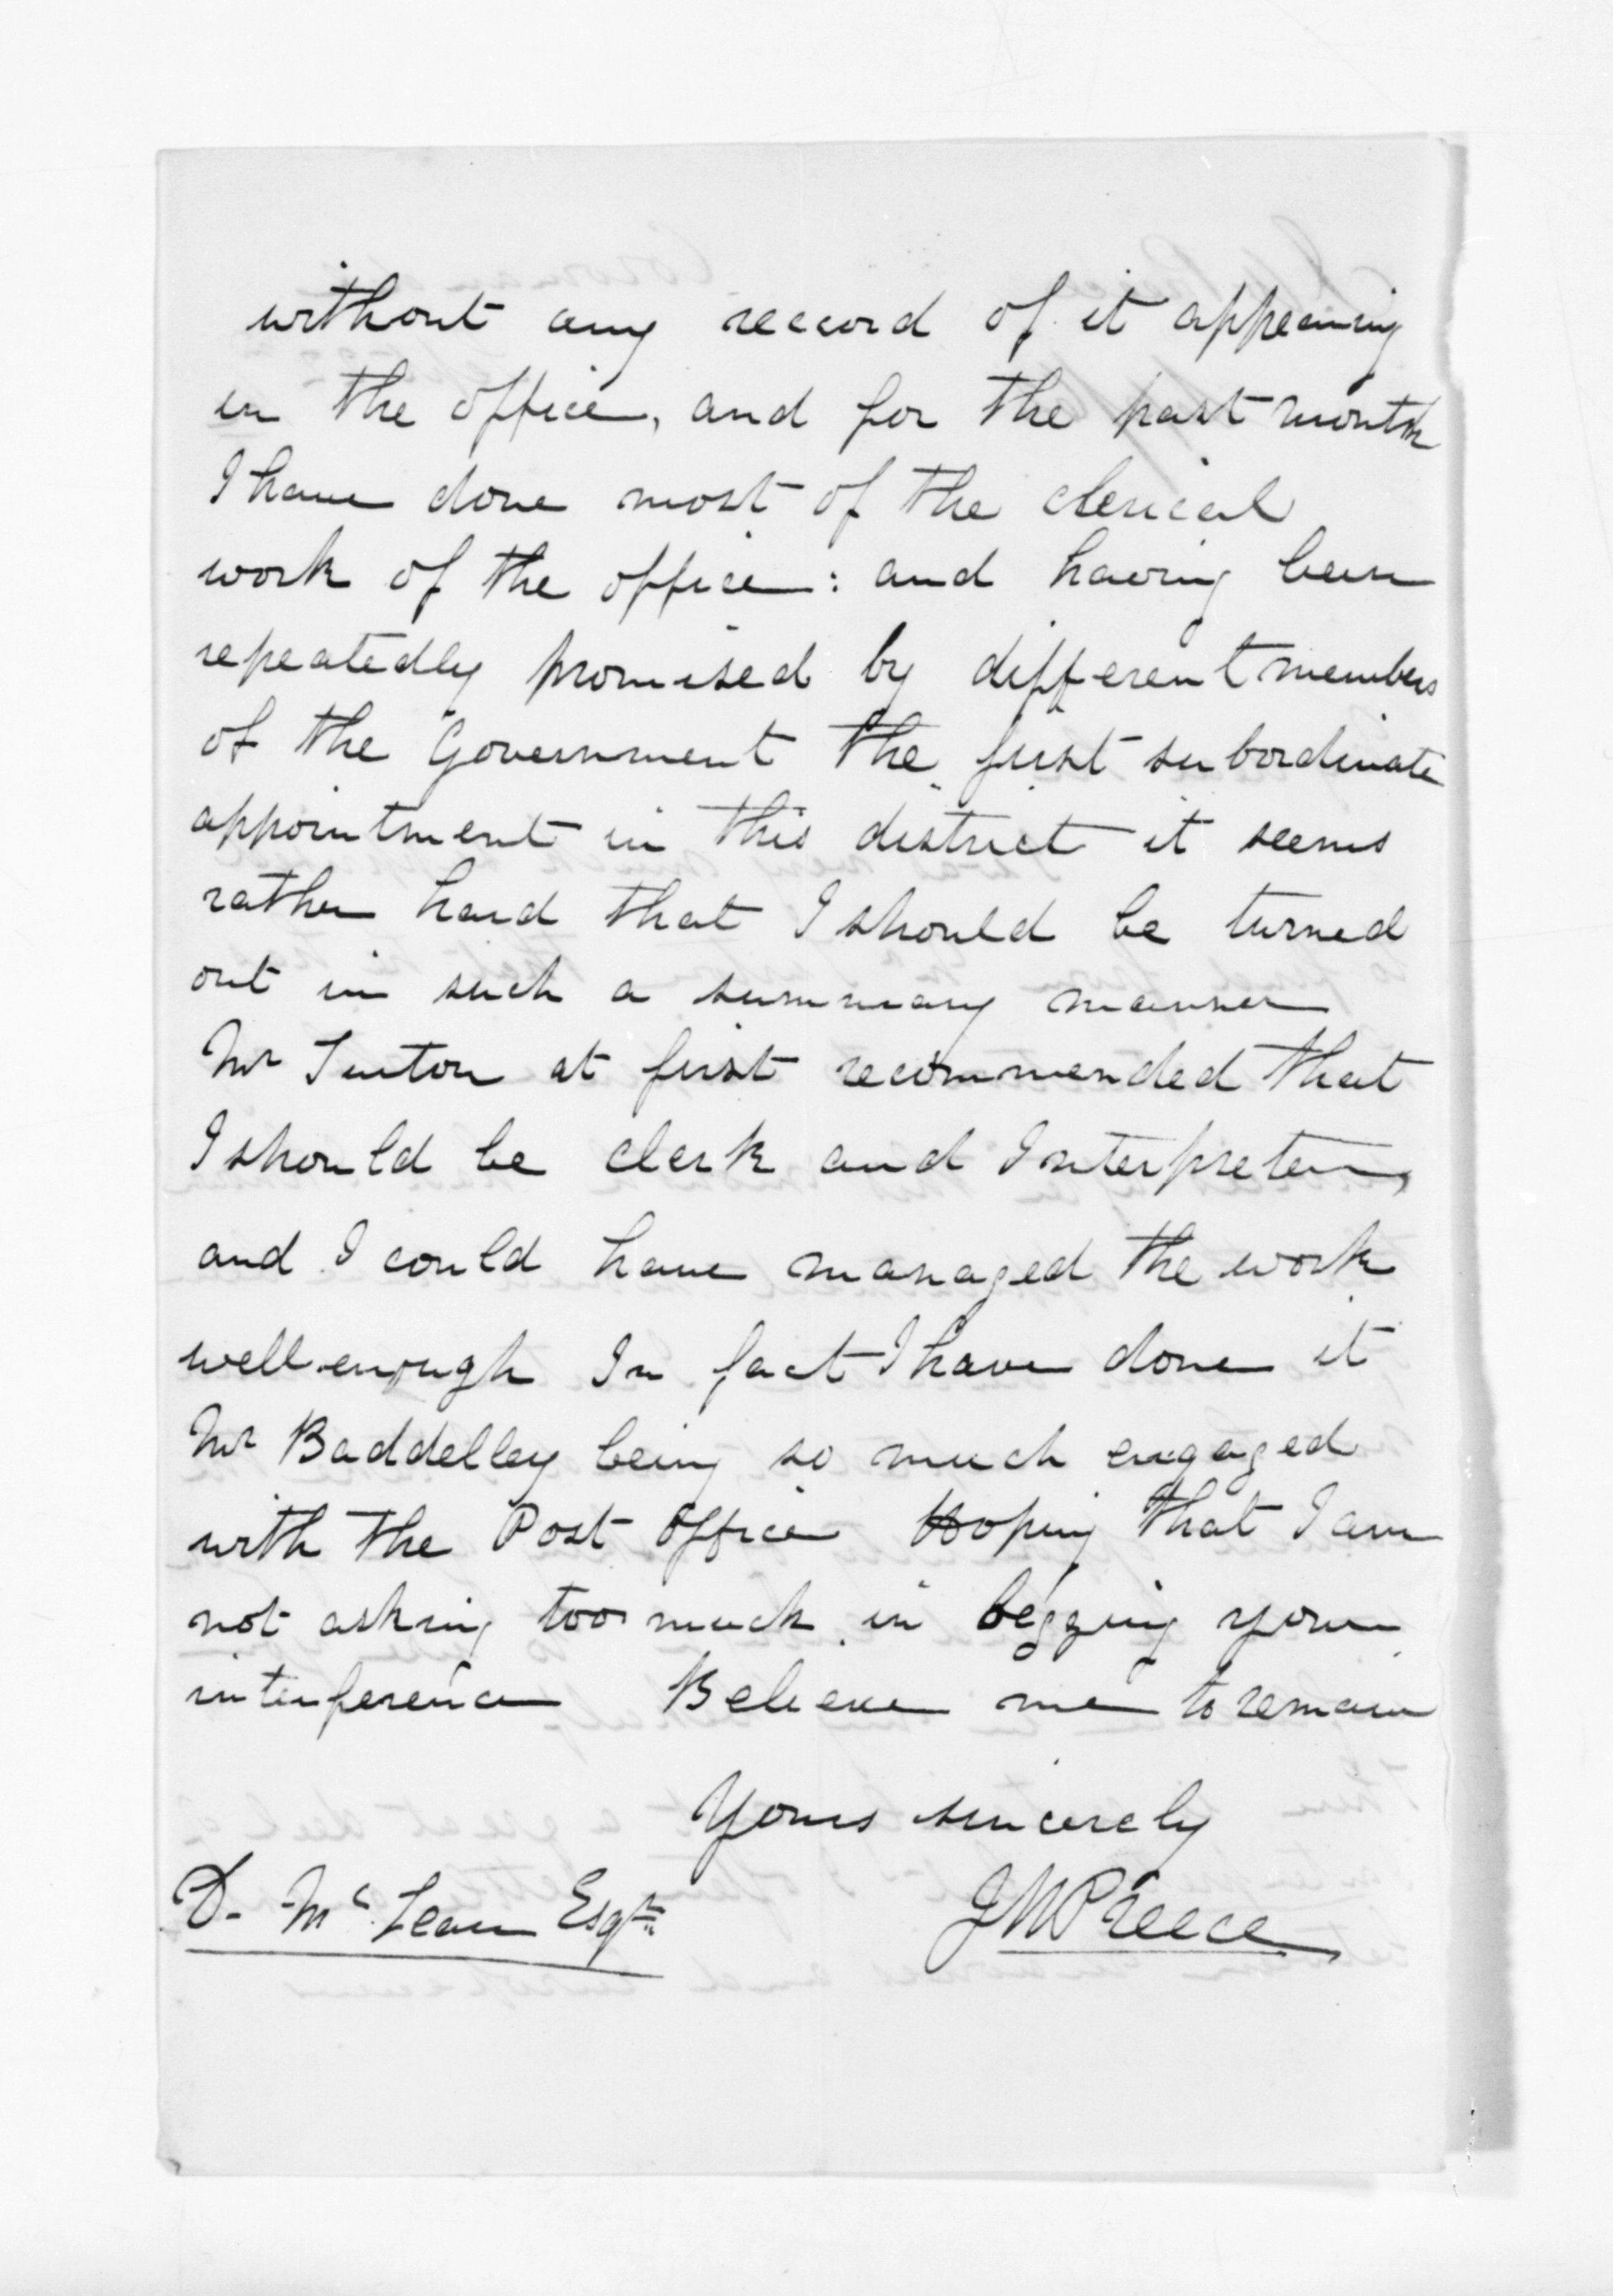 without any record of it appearing
in the office, and for the past month
I have done most of the clerical
work of the office: and having been
repeatedly promised by different members
of the Government the first subordinate
appointment in this district it seems
rather hard that I should be turned
out in such a summary manner
Mr at first recommended that
I should be clerk and Interpreter,
and I could have managed the work
well enough In fact I have done it
Mr Baddelley being so much engaged
with the Post Office Hoping that I am
not asking too much in begging your
interference Believe me to remain
Yours sincerely
D. McLean Esqre
J W Preece